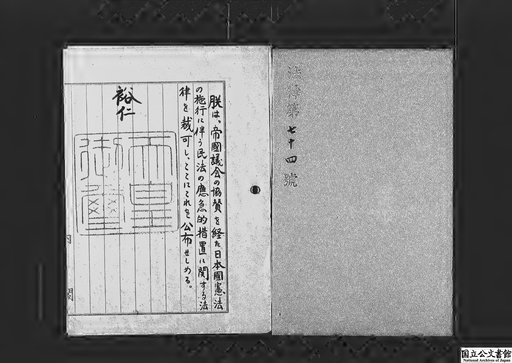 法律第七十四號
朕は、帝國議会の協賛を経た日本國憲法
の施行に伴う民法の應急的措置に関する法
律を裁可し、ここにこれを公布せしめる。
裕仁
天皇
御璽
国立公文書館
National Archives of Japan